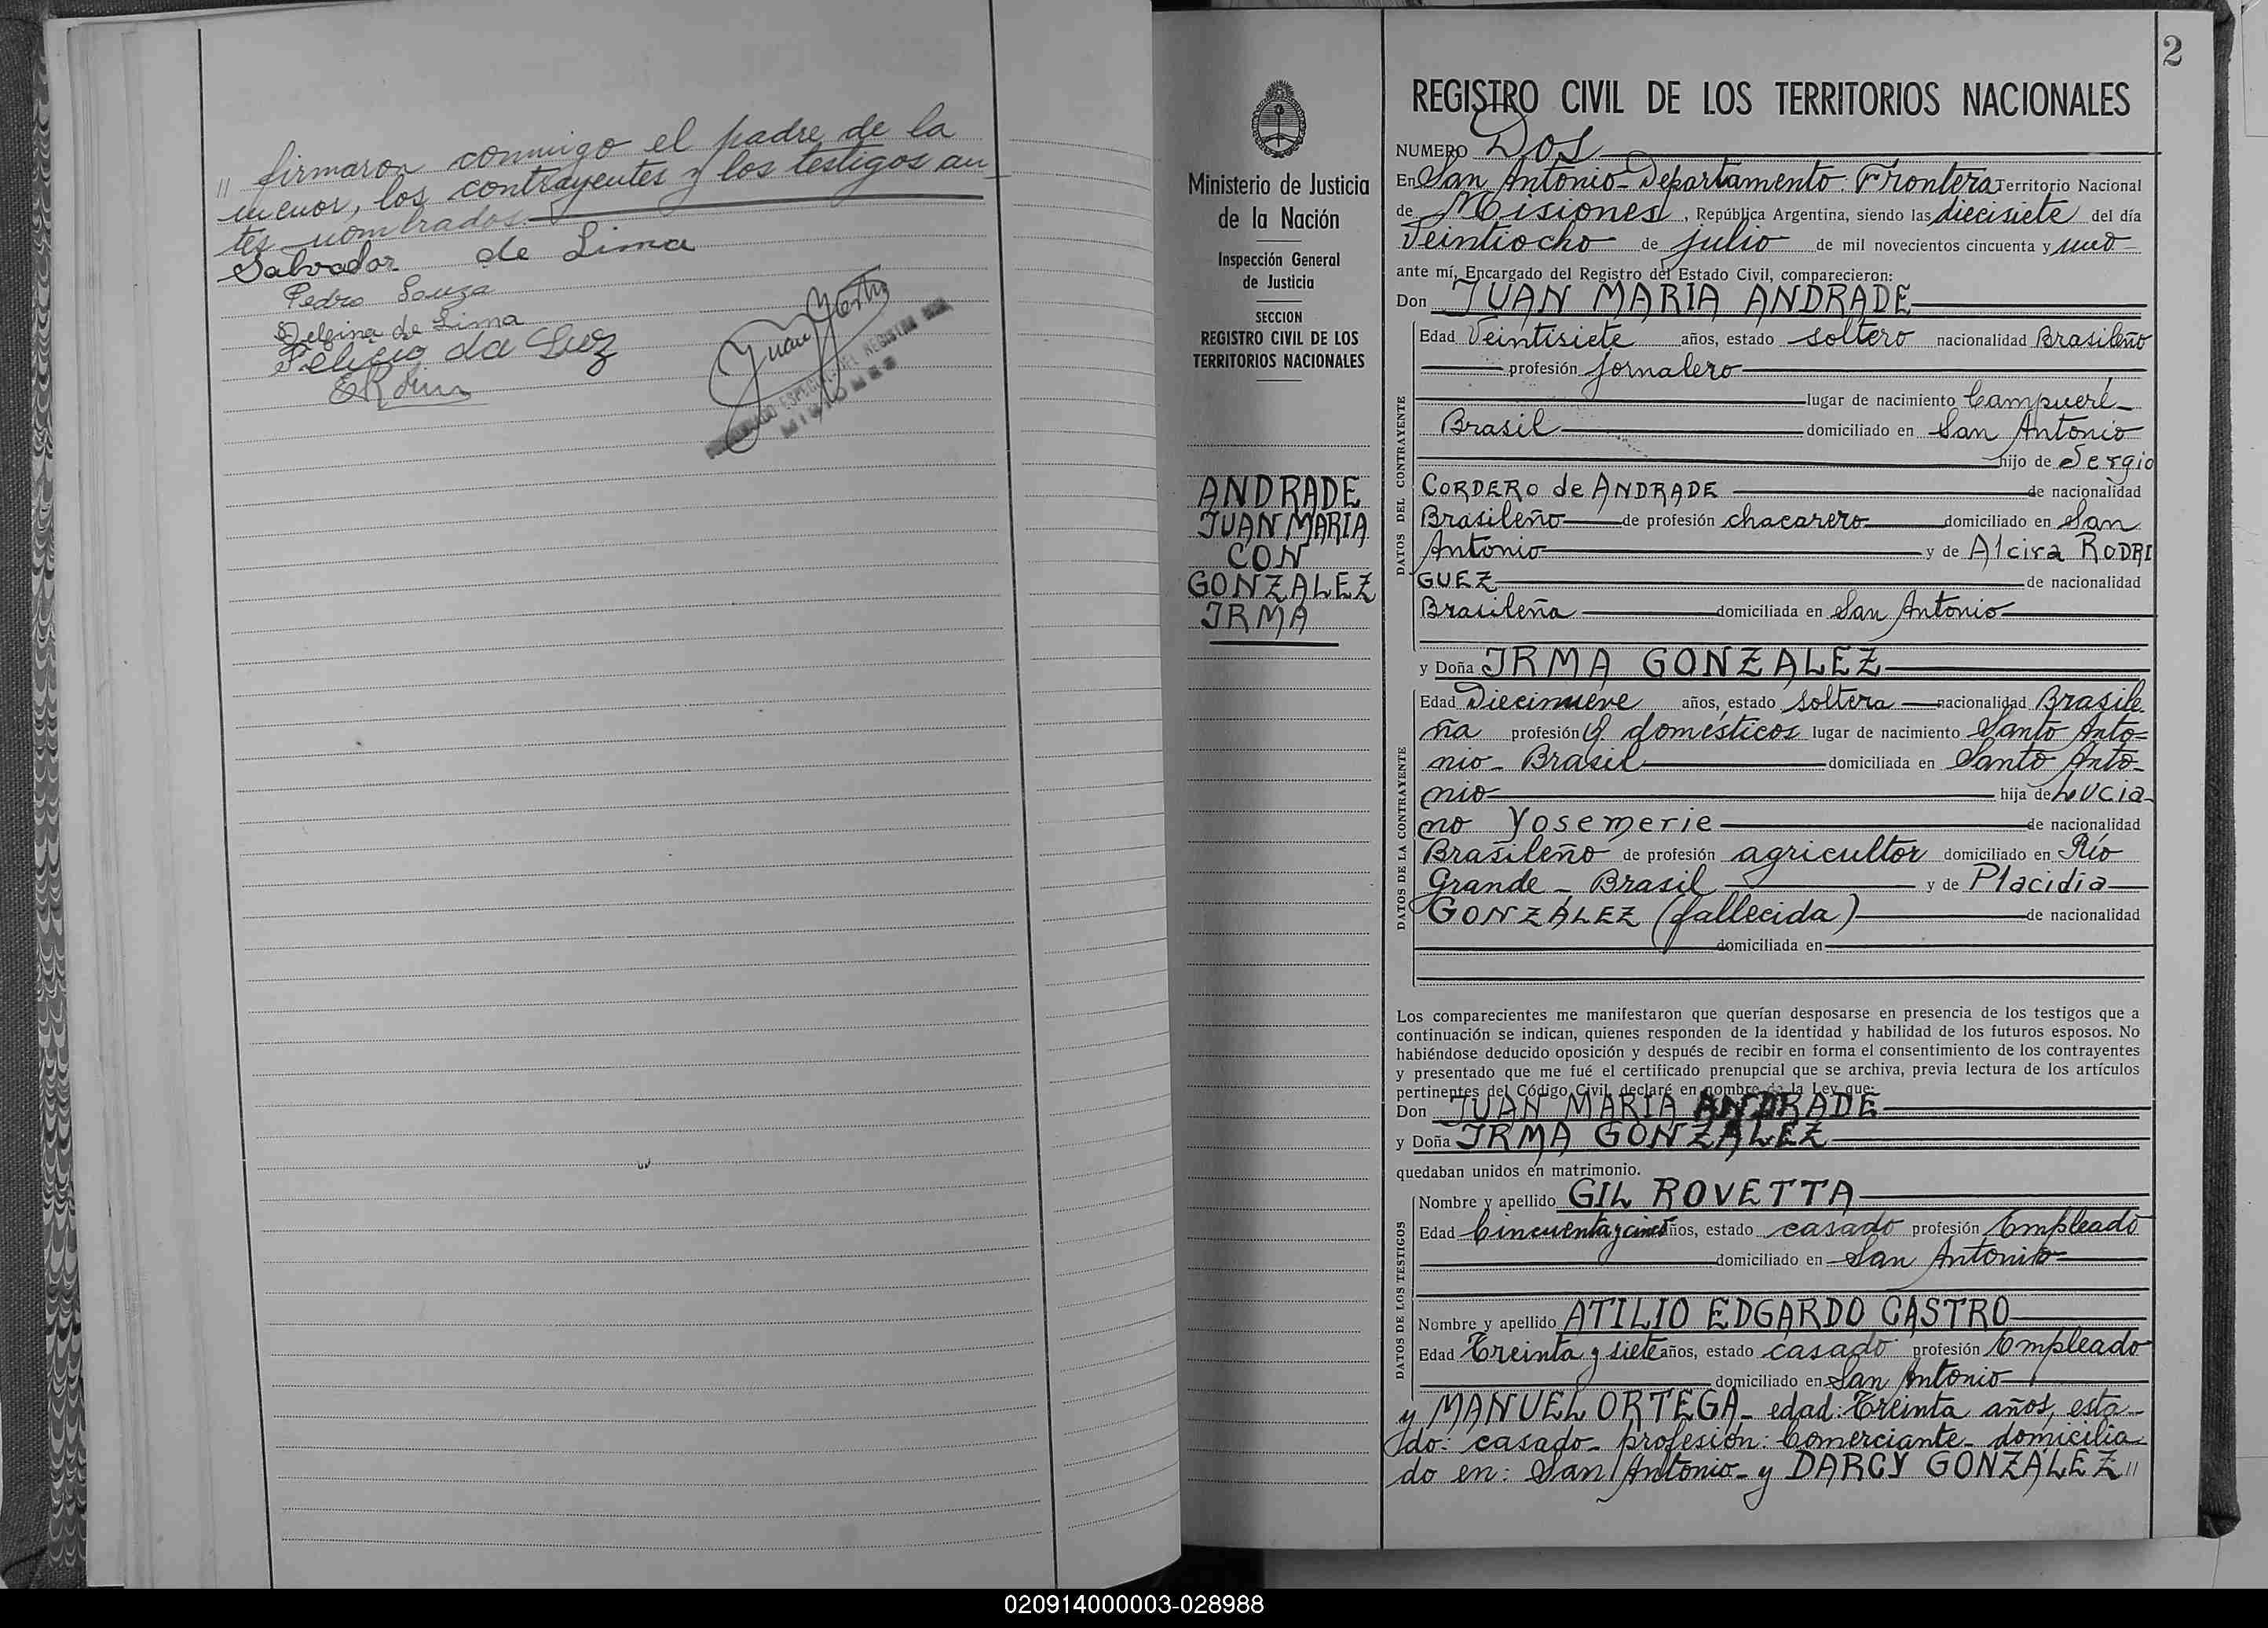 " firmaron conmigo el padre de la
menor, los contrayentes y los testigos an
tes nombrados.
Salvador de Lima
Pedro Souza
Delfina de Lima
Felicio da Luz
2
Ministerio de Justicia
de la Nación
Inspección General
de Justicia
SECCION
REGISTRO CIVIL DE LOS
TERRITORIOS NACIONALES
ANDRADE
JUAN MARIA
CON
GONZALEZ
IRMA
REGISTRO CIVIL DE LOS TERRITORIOS NACIONALES
NUMERO Dos
En San Antonio - Departamento Frontera Territorio Nacional
de Misiones, República Argentina, siendo las diecisiete del día
Veintiocho de julio de mil novecientos cincuenta y uno
ante mí, Encargado del Registro del Estado Civil, comparecieron:
Don JUAN MARIA ANDRADE
DATOS DEL CONTRAYENTE
Edad Veintisiete años, estado soltero nacionalidad Brasileño
profesión jornalero
lugar de nacimiento Campueré -
Brasil domiciliado en San Antonio
hijo de Sergio
CORDERO de ANDRADE de nacionalidad
Brasileño de profesión chacarero domiciliado en San
Antonio y de Alcira RODRI
GUEZ de nacionalidad
Brasileña domiciliada en San Antonio
y Doña IRMA GONZALEZ
DATOS DE LA CONTRAYENTE
Edad Diecinueve años, estado soltera nacionalidad Brasile
ña profesión Q. domésticos lugar de nacimiento Santo Anto=
nio - Brasil domiciliada en Santo Anto-
nio hija de Lucia-
no Yosemerie de nacionalidad
Brasileño de profesión agricultor domiciliado en Río
Grande - Brasil y de Placidia
GONZALEZ (fallecida) de nacionalidad
domiciliada en
Los comparecientes me manifestaron que querían desposarse en presencia de los testigos que a
continuación se indican, quienes responden de la identidad y habilidad de los futuros esposos. No
habiéndose deducido oposición y después de recibir en forma el consentimiento de los contrayentes
y presentado que me fué el certificado prenupcial que se archiva, previa lectura de los artículos
pertinentes del Código Civil, declaré en nombre de la Ley que:
Don JUAN MARIA ANDRADE
y Doña IRMA GONZALEZ
quedaban unidos en matrimonio.
DATOS DE LOS TESTIGOS
Nombre y apellido GIL ROVETTA
Edad Cincuenta y cinco años, estado casado profesión Empleado
domiciliado en San Antonio
Nombre y apellido ATILIO EDGARDO CASTRO
Edad Treinta y siete años, estado casado profesión Empleado
domiciliado en San Antonio
y MANUEL ORTEGA - edad: Treinta años, esta-
do: casado - profesión: Comerciante - domicilia
do en: San Antonio - y DARCY GONZALEZ "
020914000003-028988